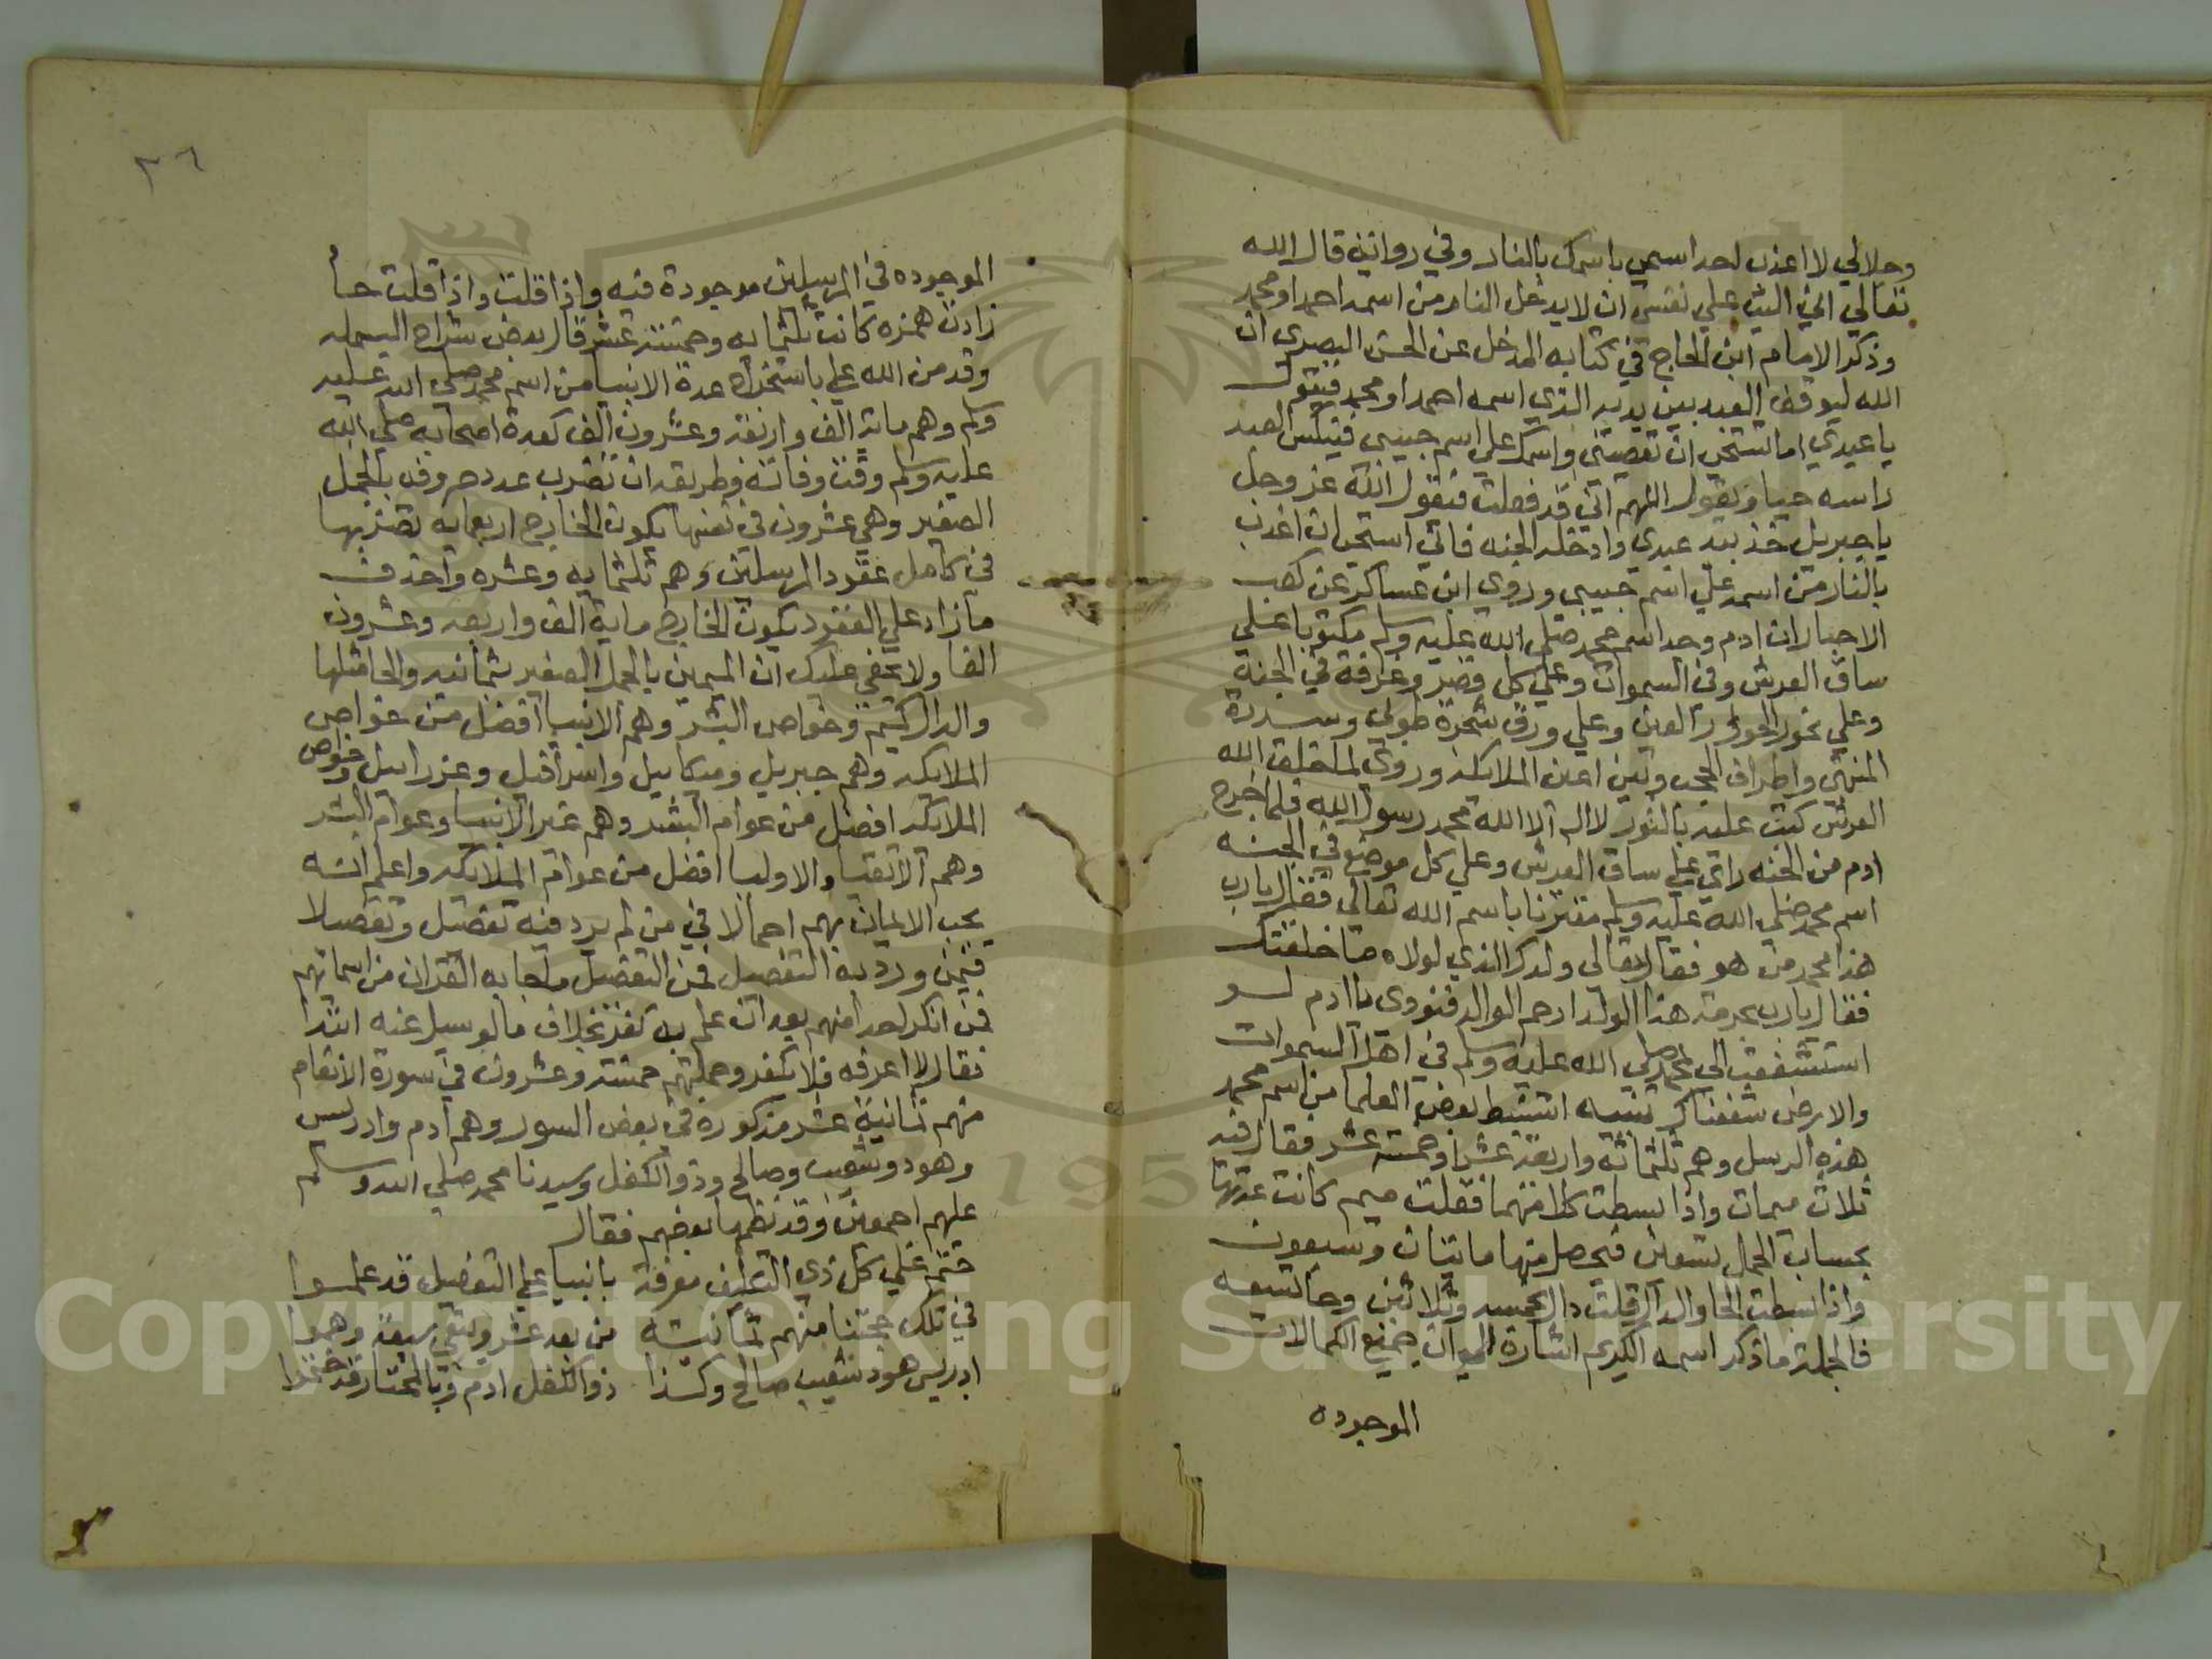 وجلالي لا اعذب احد اسمي باسمك بالنار وفي رواية قال الله
تعالي اني اليت علي نفسي ان لا يدخل النار من اسمه احمد او محمد
وذكر الامام ابن الحاج في كتابه المدخل عن الحسن البصري ان
الله ليوقف العبد بين يديه الذي اسمه احمد او محمد فيقول
يا عبدي اما تستحي ان تعصيني واسمك علي اسم حبيبي فينكس العبد
راسه حيا ويقول اللهم اني قد فعلت فيقول الله عز وجل
يا جبريل خذ بيد عبدي وادخله الجنه فاني استحي ان اعذب
بالنار من اسمه علي اسم حبيبي وروي ابن عساكر عن كعب
الاحبار ان ادم وجد اسم محمد صلي الله عليه وسلم مكتوبا علي
ساق العرش وفي السموات وعلي كل قصر وغرفة في الجنة
وعلي نحور الحور العين وعلي ورق شجرة طوبي وسدرة
المنتهي واطراف الحجب وبين اعين الملايكة وروي لما خلق الله
العرش كتب عليه بالنور لا اله الا الله محمد رسول الله فلما خرج
ادم من الجنه راي علي ساق العرش وعلي كل موضع في الجنه
اسم محمد صلي الله عليه وسلم مقترنا باسم الله تعالي فقال يا رب
هذا محمد من هو فقال تعالي ولدك الذي لولاه ما خلقتك
فقال يا رب بحرمة هذا الولد ارحم الوالد فنودي يا ادم لو
استشفعت الي بمحمد صلي الله عليه وسلم في اهل السموات
والارض شفعناك تنبيه استنبط بعض العلما من اسم محمد
هذه الرسل وهم ثلثمائة واربعة عشر او خمسة عشر فقال فيه
ثلاث ميمات واذا بسطت كلا منهما فقلت ميم كانت عدتها
بحساب الجمل تسعين فيحصل منها مايتان وسبعون
واذا بسطت الحا والدال قلت دال بخمسه وثلاثين وحا بتسعه
فالجملة ما ذكر اسمه الكريم اشارة الي ان جميع الكمالات
الموجوده
٣٦
الموجوده في المرسلين موجودة فيه واذا قلت واذا قلت حاء
زادت همزه كانت ثلثمايه وخمسة عشر قال بعض شراح البسمله
وقد من الله علي باستخراج عدة الانبيا من اسم محمد صلي الله عليه
وسلم وهم ماية الف واربعة وعشرون الف كعدة اصحابه صلي الله
عليه وسلم وقت وفاته وطريقه ان تضرب عدد حروفه بالجمل
الصغير وهي عشرون في نفسها يكون الخارج اربعمايه تضربها
في كامل عقود المرسلين وهم ثلثمايه وعشره وتحذف
ما زاد علي العقود يكون الخارج ماية الف واربعه وعشرون
الفا ولا يخفي عليك ان الميمين بالجمل الصغير بثمانيه والحا مثلها
والدال وخواص البشر وهم الانبيا افضل من خواص
الملايكه وهم جبريل وميكاييل واسرافيل وعزراييل وخواص
الملايكه افضل من عوام البشر وهم غير الانبيا وعوام البشر
وهم الاتقيا والاوليا افضل من عوام الملايكه واعلم انه
يجب الايمان بهم اجمالا في من لم يرد فيه تفصيل وتفصيلا
فيمن ورد به التفصيل فمن التفصيل ما جا به القران من اسمائهم
فمن انكر احدا منهم بعد ان علم به كفر بخلاف ما لو سيل عنه ابتدا
فقال لا اعرفه فلا يكفر وجملتهم خمسة وعشرون في سورة الانعام
منهم ثمانية عشر مذكوره في بعض السور وهم ادم وادريس
وهود وشعيب وصالح وذو الكفل وسيدنا محمد صلي الله وسلم
عليهم اجمعين وقد نظمها بعضهم فقال
حتم علي كل ذي التكليف معرفة بانبيا علي التفصيل قد علموا
في تلك حجتنا منهم ثمانية من بعد عشر ويبقي سبعة وهموا
ادريس هود شعيب صالح وكذا ذو الكفل ادم وبالمختار قد ختموا
Copyright © King Saud University
195